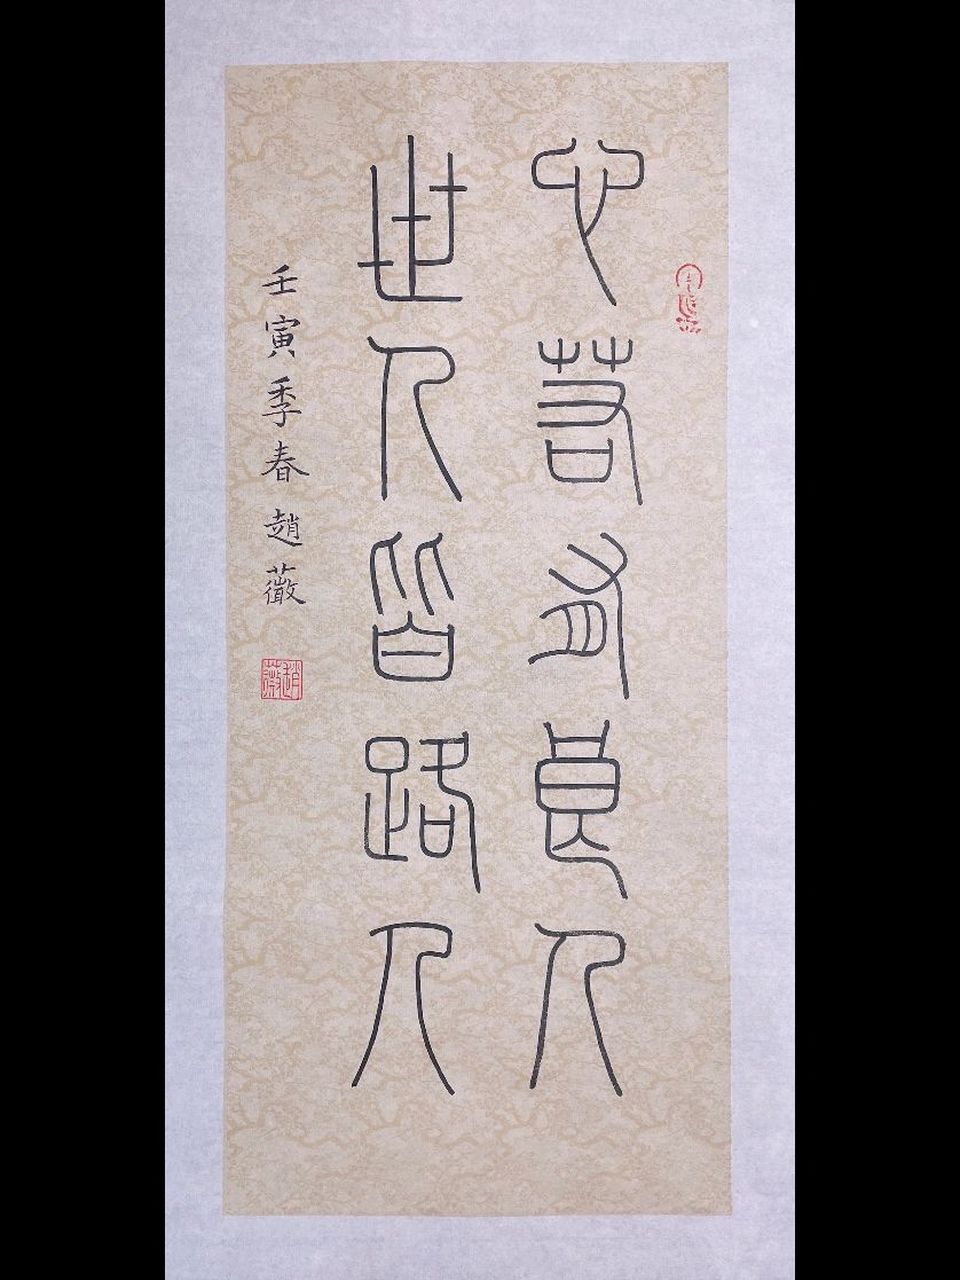 心若有良人
世人皆路人
壬寅季春趙薇
趙薇